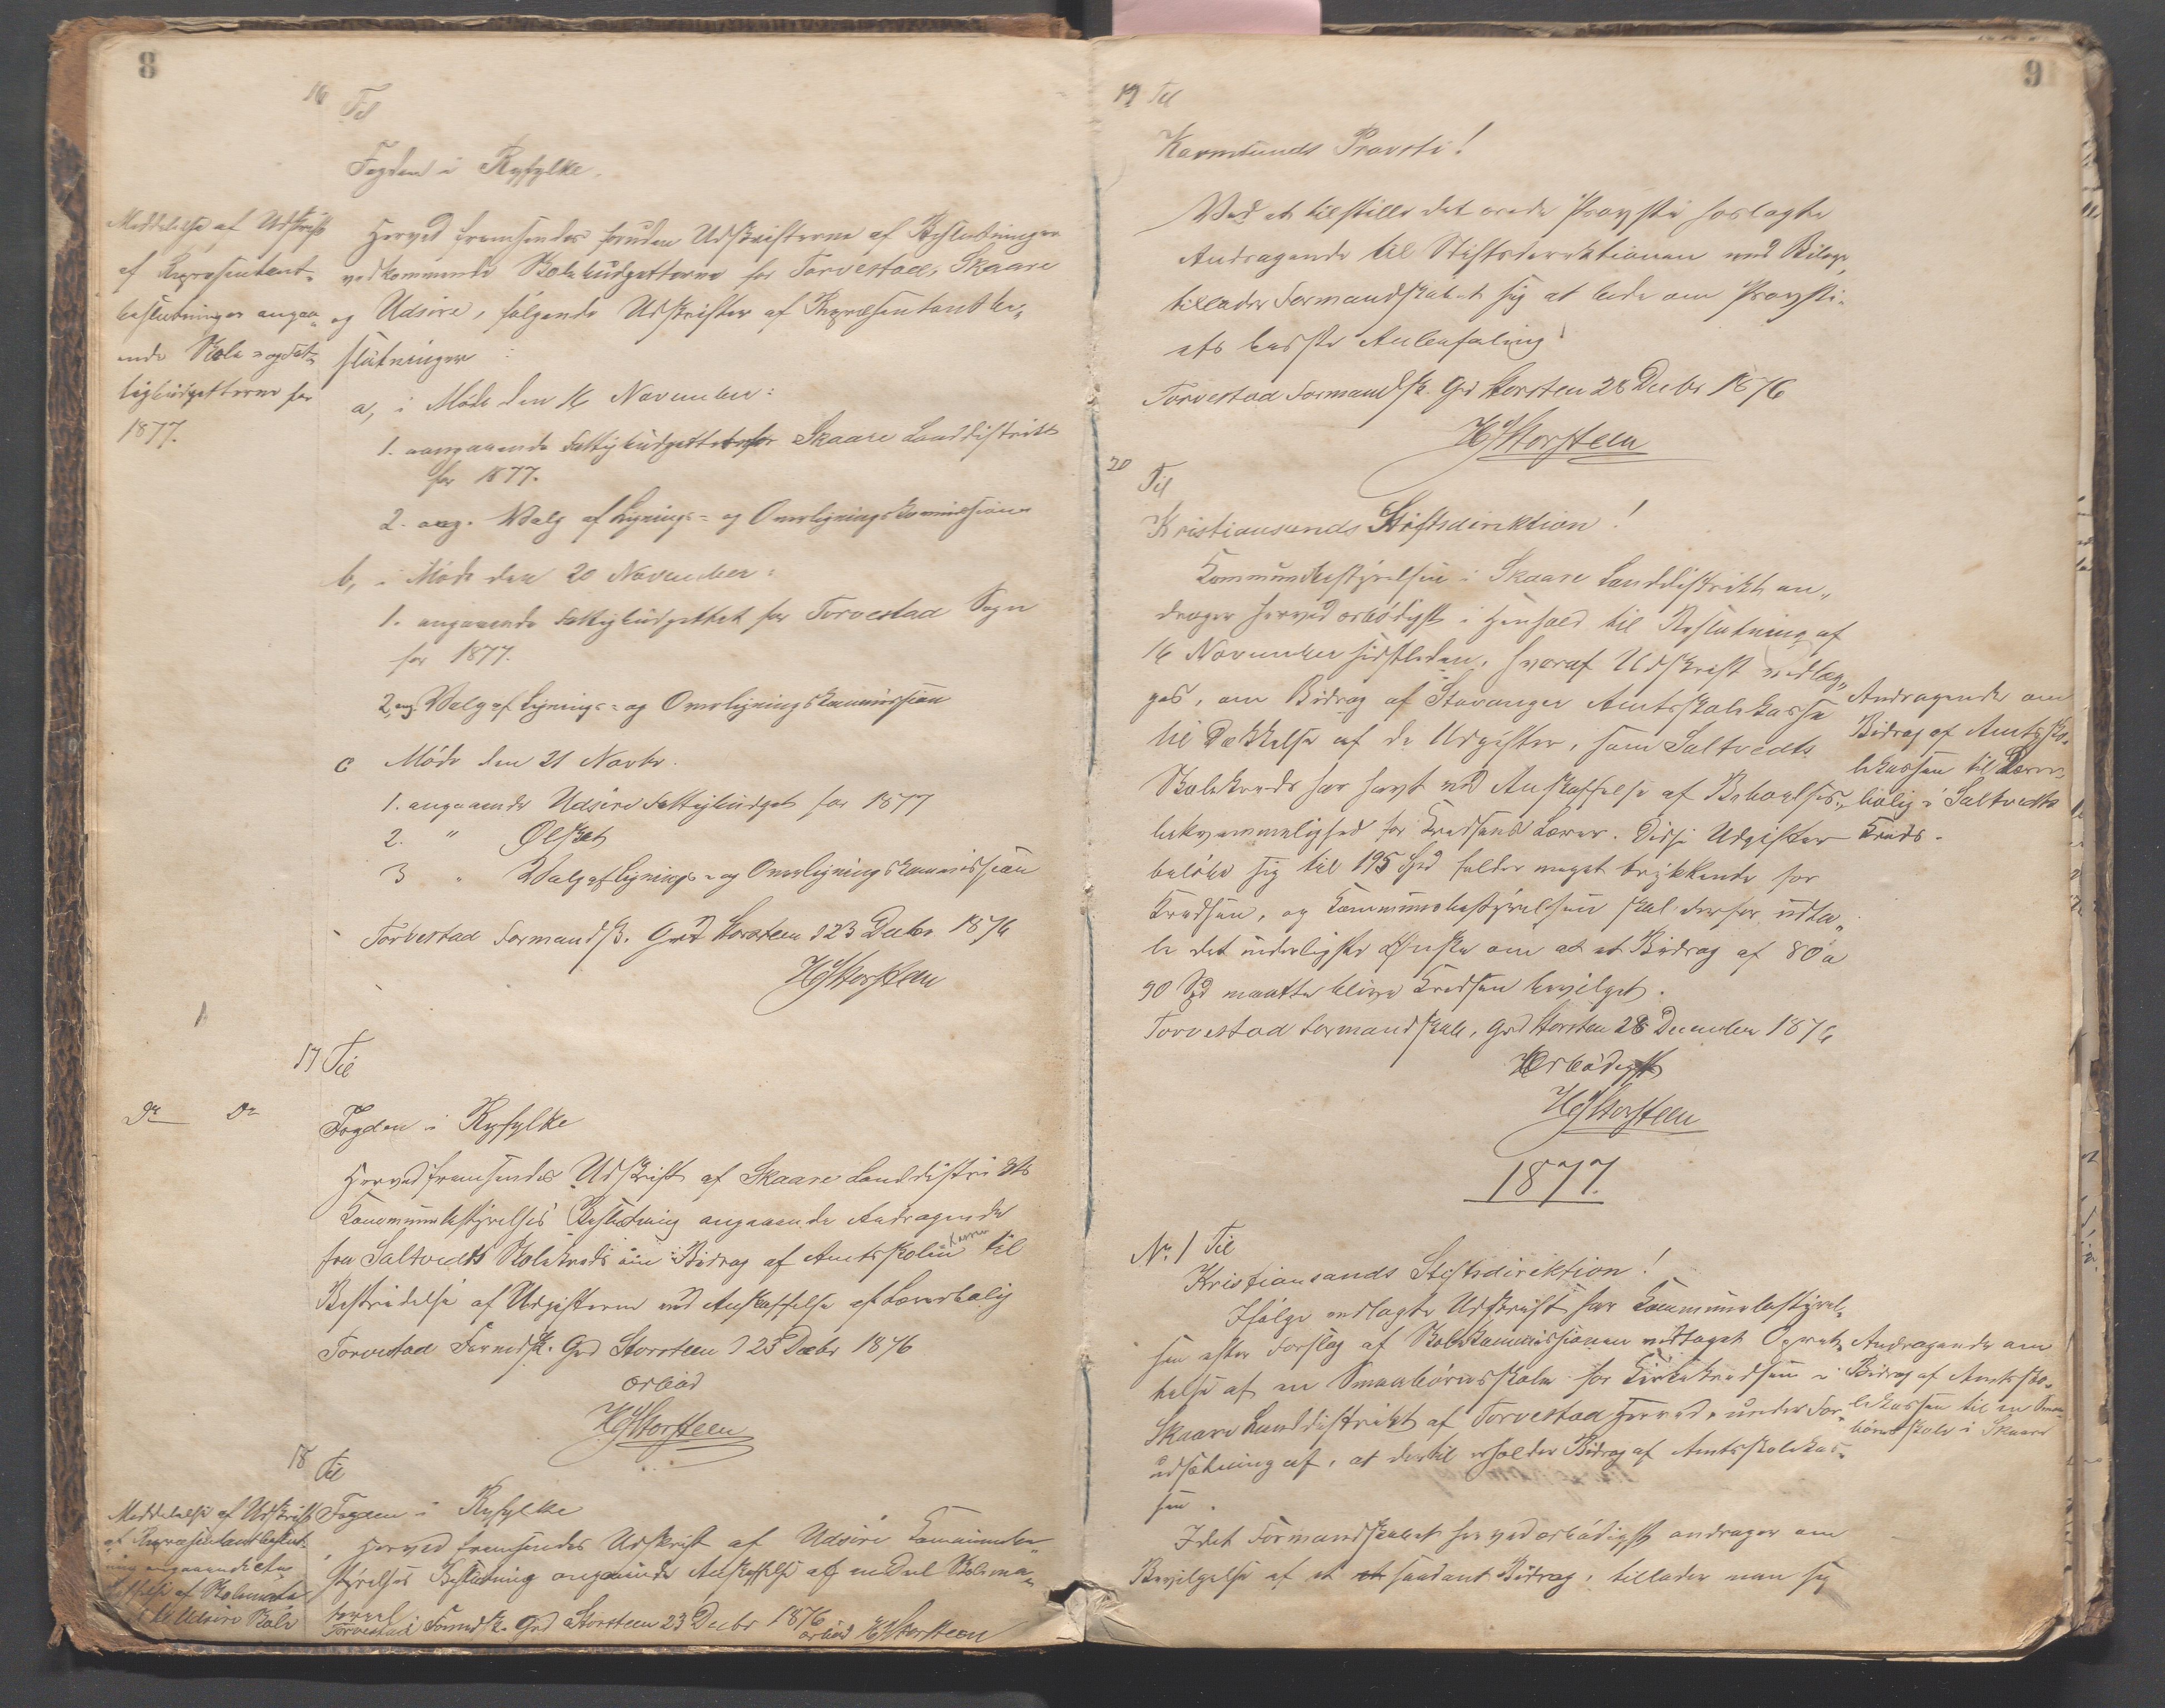 8
16 Til
Fogden i Ryfylke.
Meddelelse af Udskrift
af Repræsentant-
beslutninger angaa-
ende Skole- og Fat-
tigbudgetterne for
1877.
Herved fremsendes foruden Udskrifterne af Beslutninger
vedkommende Skolebudgetterne for Torvestad, Skaare
og Udsire, følgende Udskrifter af Repræsentantbe-
slutninger:
a, i Møde den 16 November:
1. aangaaende Fattigbudgettet for Skaare Landdistrikt
for 1877.
2. ang. Valg af Lignings- og Overligningskommission
b, i Møde den 20 November:
1. angaaende Fattigbudgettet for Torvestad Sogn
for 1877.
2, ang. Valg af Lignings- og Overligningskommission
c Møde den 21 Novbr.
1. angaaende Udsire Fattigbudget for 1877
2. " Ølskat
3 " Valg af Lignings- og Overligningskommission
Torvestad Formandsk. Grd Storsteen d 23 Decbr 1876
HJStorsteen
17 Til
Do Do
Fogden i Ryfylke
Herved fremsendes Udskrift af Skaare Landdistrikts
Kommunebestyrelses Beslutning angaaende Andragende
fra Saltvedts Skolekreds om Bidrag af Amtsskolekassen til
Bestridelse af Udgifterne ved Anskaffelse af Lærerbolig
Torvestad Formdsk. Grd Storsteen d 23 Decbr 1876
ærbød
HJStorsteen
18 Til
Meddelelse af Udskrift
af Repræsentantbeslut-
ning angaaende An-
skaffelse af Skolemate-
Udsire Skole
Fogden i Ryfylke
Herved fremsendes Udskrift af Udsire Kommunebe-
styrelses Beslutning angaaende Anskaffelse af en Del Skolema-
teriel
Torvestad Formdsk. Grd Storsteen 23 Decbr 1876
ærbød HJStorsteen
9
19 Til
Karmsunds Provsti!
Ved at tilstille det ærede Provsti forlagte
Andragende til Stiftsdirektionen med Bilage,
tillader Formandskabet sig at bede om Provsti-
ets bedste Anbefaling!
Torvestad Formandsk. Grd Storsteen 28 Decbr 1876
HJStorsteen
20
Til
Kristiansands Stiftsdirektion!
Kommunebestyrelsen i Skaare Landdistrikt an-
drager herved ærbødigst i Henhold til Beslutning af
16 November sidstleden, hvoraf Udskrift vedlæg-
ges, om Bidrag af Stavanger Amtsskolekasse
til Dækkelse af de Udgifter, som Saltvedts
Skolekreds har havt ved Anskaffelse af Beboelses-
bekvemmelighed for Kredsens Lærer. Disse Udgifter
beløbe sig til 195 Spd falder meget trykkende for
Kredsen, og Kommunebestyrelsen skal derfor udta-
le det inderligste Ønske om at et Bidrag af 80 a
90 Spd maatte blive Kredsen bevilget.
Andragende om
Bidrag af Amtssko-
lekassen til Lærer-
bolig i Saltvedts
Kreds.
Torvestad Formandskab, Grd Storsteen 28 December 1876
Ærbødigst
HJStorsteen
1877.
No. 1 Til
Kristiansands Stiftsdirektion!
Ifølge vedlagte Udskrift har Kommunebestyrel-
sen efter Forslag af Skolekommissionen vedtaget Opret-
telse af en Smaabørnsskole for Kirkekredsen i
Skaare Landdistrikt af Torvestad Herred, under For-
udsætning af, at dertil erholdes Bidrag af Amtsskolekas-
sen.
Andragende om
Bidrag af Amtssko-
lekassen til en Smaa-
børnsskole i Skaare
Idet Formandskabet herved ærbødigst andrager om
Bevilgelse af et et saadant Bidrag, tillader man sig